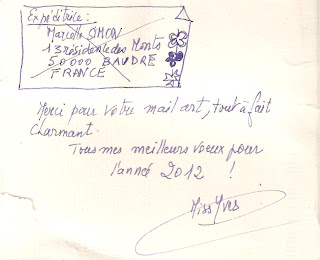 Expéditrice:
Marcelle SIMON
13 résidence des Monts
50000 BAUDRE
FRANCE
Merci pour votre mail art, tout à fait
charmant.
Tous mes meilleurs voeux pour
l'année 2012 !
Miss Yves